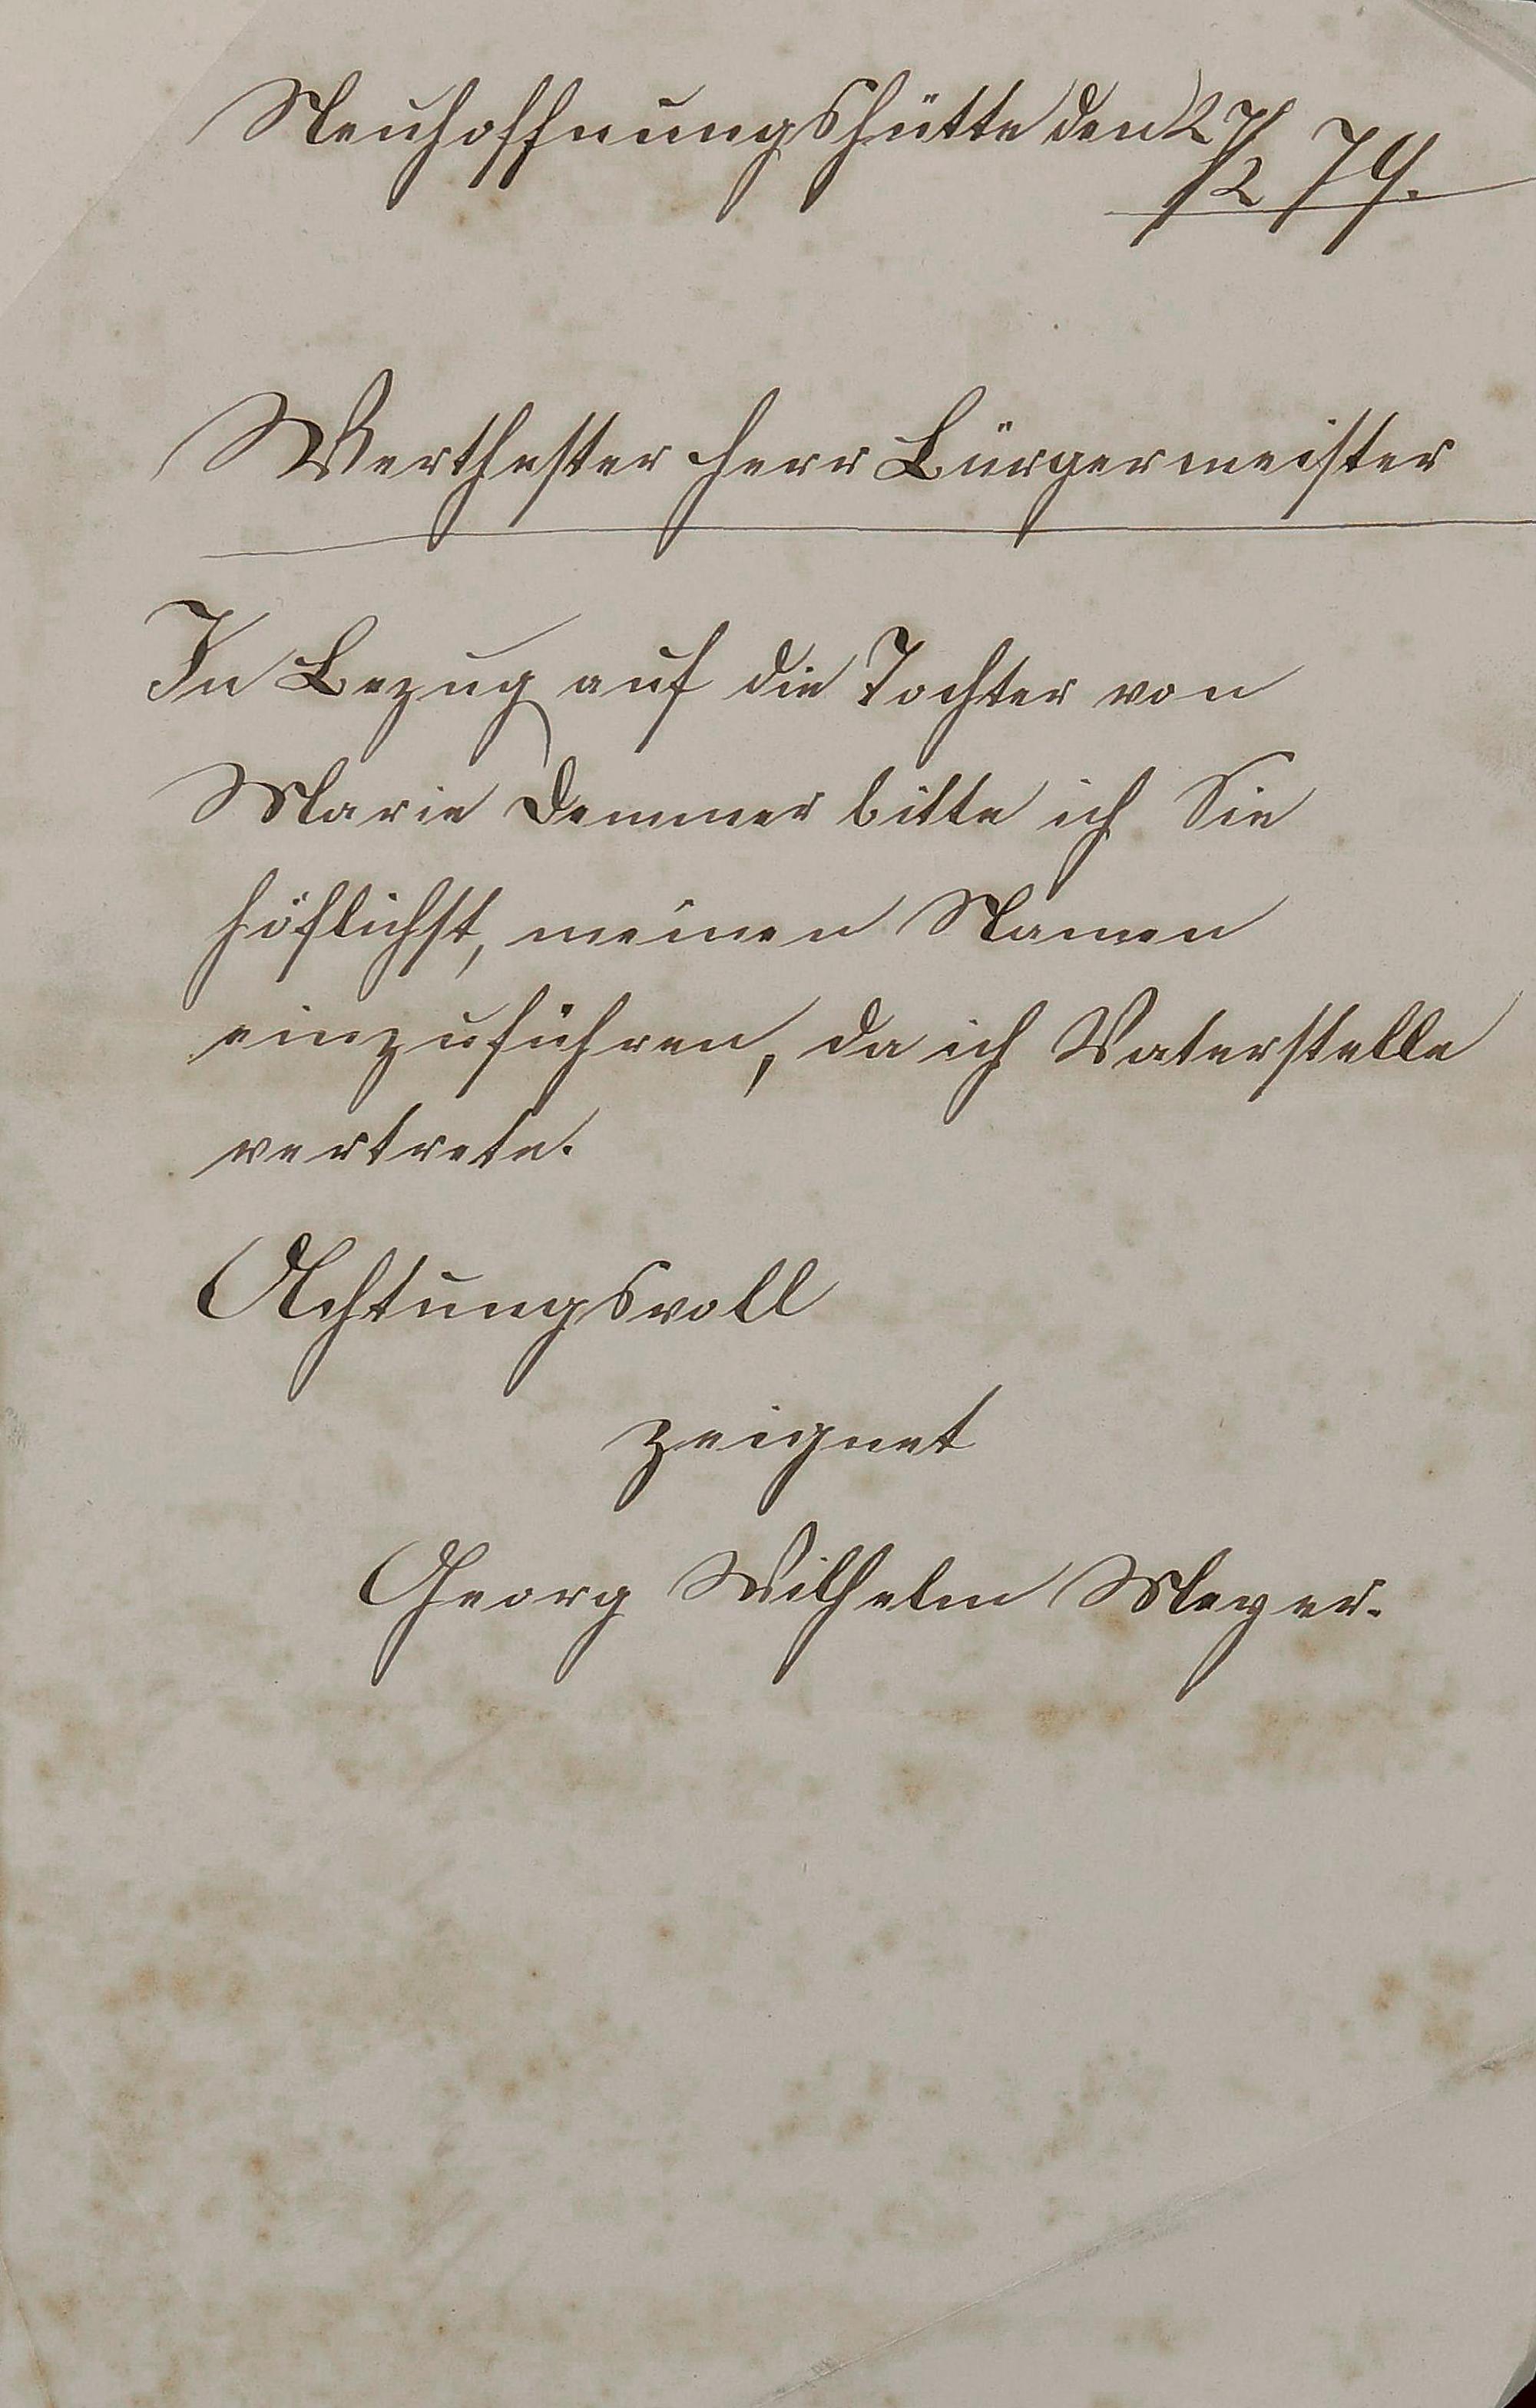 Neuhoffnungshütte den 27/2 74.
Werthester Herr Bürgermeister
In Bezug auf die Tochter von
Marie Demmer bitte ich Sie
höflichst, meinen Namen
einzuführen, da ich Vaterstelle
vertrete.
Achtungsvoll
zeignet
Georg Wilhelm Meyer.